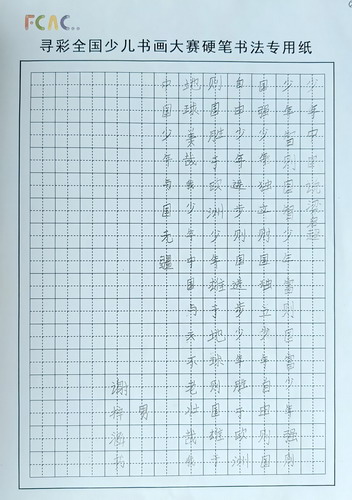 FCAC
寻彩全国少儿书画大赛硬笔书法专用纸
少年中国说
少年智则国智少年富则国富少年强则
国强少年独立则国独立少年自由则国
自由少年进步则国进步少年胜于欧洲
则国胜于欧洲少年雄于地球则国雄于
地球美哉我少年中国与天不老壮哉我
中国少年与国无疆
谢梓涵书